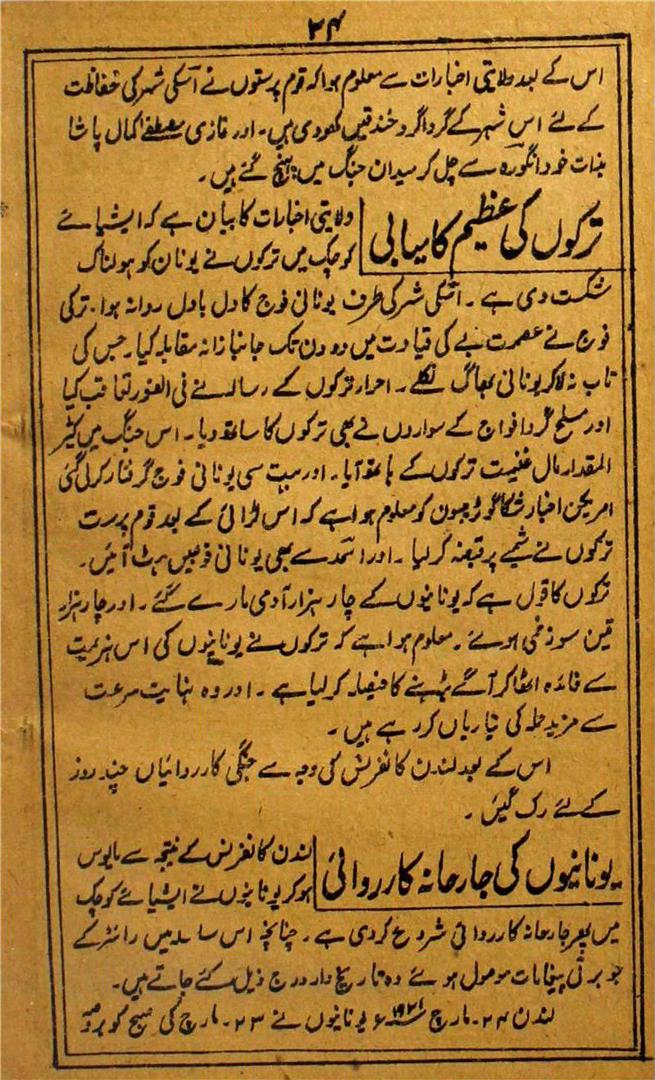 ۲۴
اس کے بعد ولایتی اخبارات سے معلوم ہوا کہ قوم پرستوں نے اسکی شہر کی حفاظت
کے لئے اس شہر کے گرداگرد خندقیں کھودی ہیں۔ اور غازی مصطفےٰ کمال پاشا
بذات خود انگورہ سے چل کر میدان جنگ میں پہنچ گئے ہیں۔
ترکوں کی عظیم کامیابی
ولایتی اخبارات کا بیان ہے کہ ایشیائے
کوچک میں ترکوں نے یونان کو ہولناک
شکست دی ہے۔ اسکی شہر کی طرف یونانی فوج کا دل بادل روانہ ہوا۔ ترکی
فوج نے عصمت بے کی قیادت میں دو دن تک جانبازانہ مقابلہ کیا۔ جس کی
تاب نہ لاکر یونانی بھاگ نکلے۔ احرار ترکوں کے رسالے نے فی الفور تعاقب کیا
اور مسلح کرد افواج کے سواروں نے بھی ترکوں کا ساتھ دیا۔ اس جنگ میں کثیر
المقدار مال غنیمت ترکوں کے ہاتھ آیا۔ اور بہت سی یونانی فوج گرفتار کرلی گئی
امریکن اخبار شکاگو ٹریبون کو معلوم ہوا ہے کہ اس لڑائی کے بعد قوم پرست
ترکوں نے پر قبضہ کرلیا۔ اور سے بھی یونانی فوجیں ہٹ آئیں۔
ترکوں کا قول ہے کہ یونانیوں کے چار ہزار آدمی مارے گئے۔ اور چار ہزار
تین سو زخمی ہوئے۔ معلوم ہوا ہے کہ ترکوں نے یونانیوں کی اس ہزیمت
سے فائدہ اٹھا کر آگے بڑہنے کا فیصلہ کرلیا ہے۔ اور وہ نہایت سرعت
سے مزید حملہ کی تیاریاں کر رہے ہیں۔
اس کے بعد لندن کانفرنس کی وجہ سے جنگی کارروائیاں چند روز
کے لئے رک گئیں۔
یونانیوں کی جارحانہ کارروائی
لندن کانفرنس کے نتیجہ سے مایوس
ہوکر یونانیوں نے ایشیائے کوچک
میں پھر جارحانہ کارروائی شروع کردی ہے۔ چنانچہ اس سلسلہ میں رائٹر کے
جو برقی پیغامات موصول ہوئے وہ تاریخ وار درج ذیل کئے جاتے ہیں۔
لندن ۲۴۔ مارچ ۱۹۲۱ء یونانیوں نے ۲۳۔ مارچ کی صبح کو بروصہ